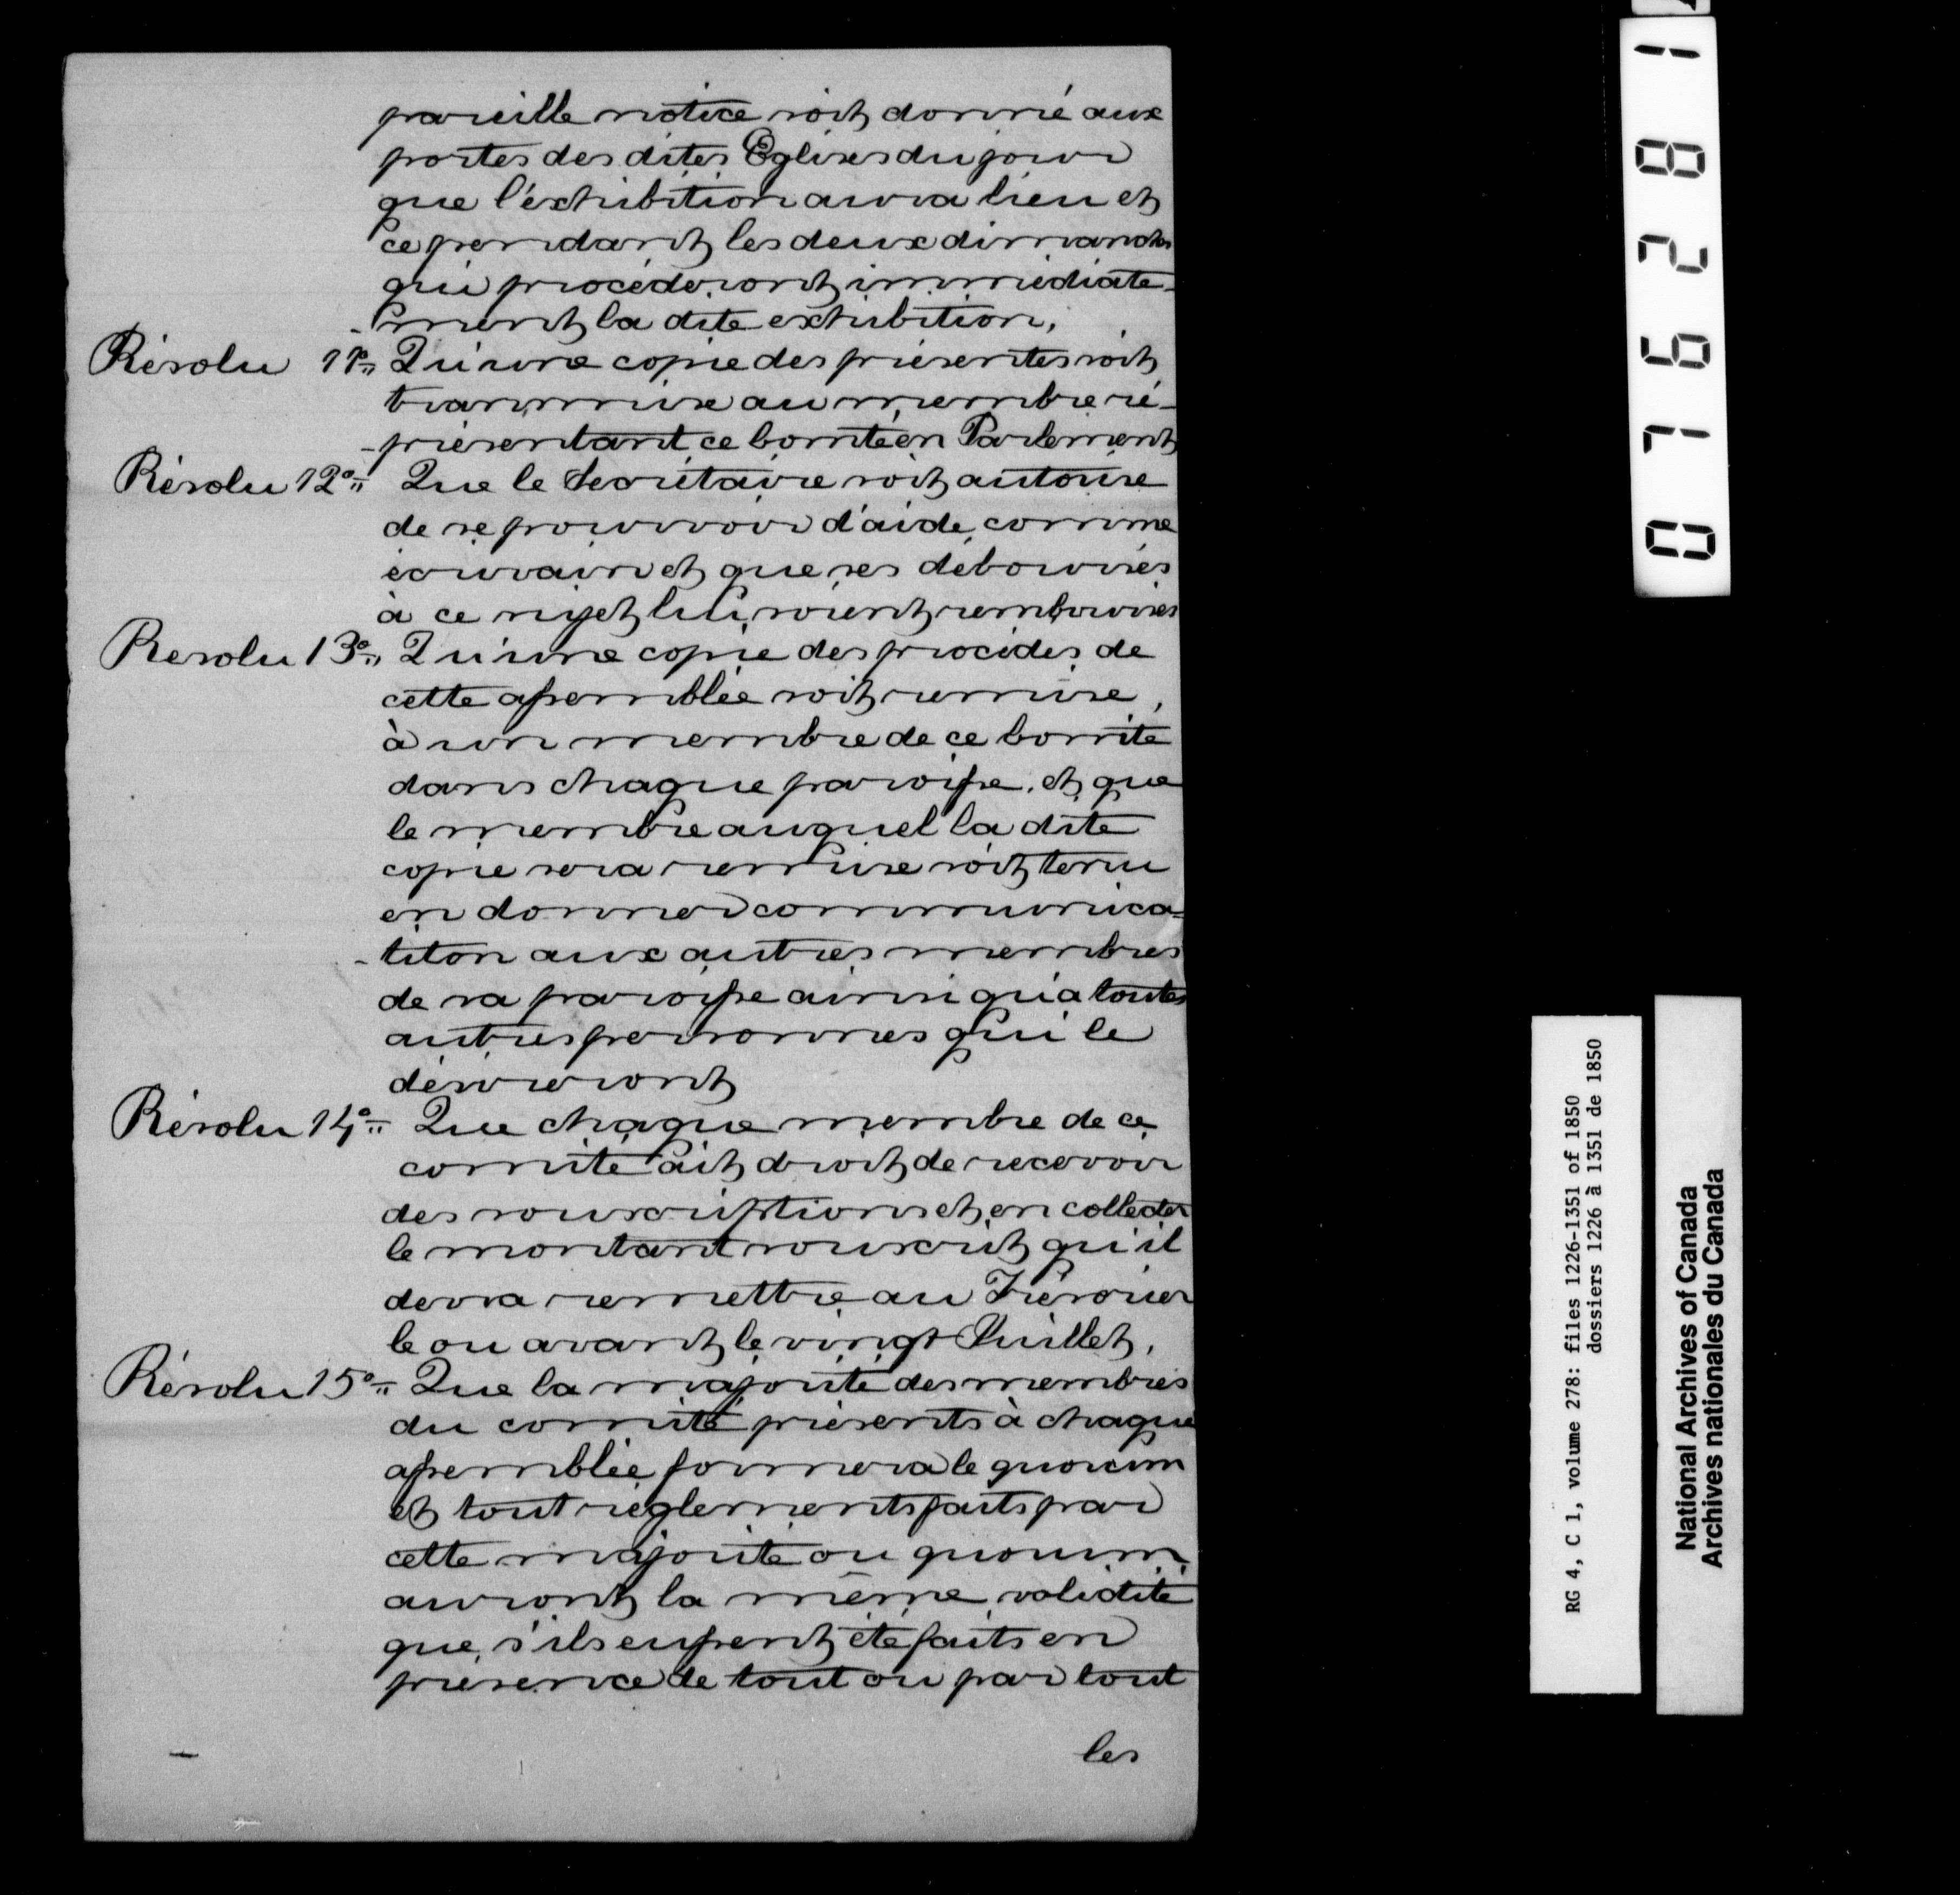 pareille notice soit donné aux
portes des dites Eglises du jour
que l'éxhibition aura lieu et
ce pendant les deux dimanches
qui procéderont immédiate-
-ment la dite exhibition,
Résolu 11º Qu'une copie des présentes soit
transmise au membre ré-
-présentant ce Comté en Parlement
Résolu 12º Que le Secrétaire soit autorisé
de se pourvoir d'aide comme
écrivain et que ses déboursés
à ce sujet lui soient remboursés
Resolu 13º Qu'une copie des procédés de
cette assemblée soit remise,
à un membre de ce Comité
dans chaque paroisse. et que
le membre auquel la dite
copie sera remise soit tenu
en donner communica=
-tion aux autres membres
de sa paroisse ainsi qu'a toutes
autres personnes qui le
désireront
Résolu 14º Que chaque membre de ce
comité ait droit de recevoir
des souscriptions et en collecter
le montant souscrit qu'il
devra remettre au Trésorier
le ou avant le vingt Juillet,
Résolu 15º Que la majorité des membres
du comité présents à chaque
assemblée formera le quorum
et tout règlements faits par
cette majorité ou quorum
auront la même validité
que s'ils eussent été faits en
présence de tout ou par tout
les
076281
RG 4, C 1, volume 278: files 1226-1351 of 1850
dossiers 1226 à 1351 de 1850
National Archives of Canada
Archives nationales du Canada